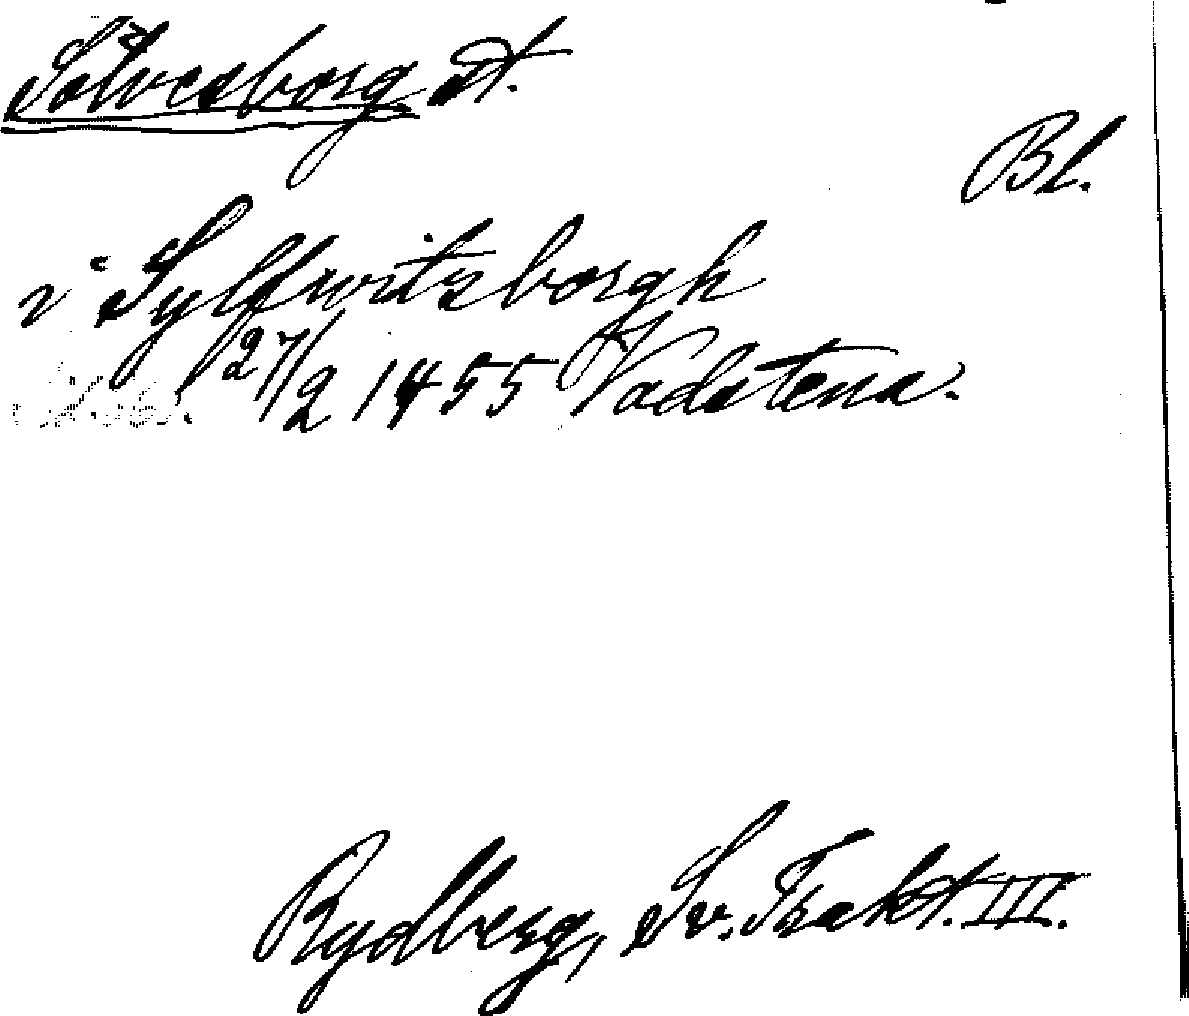 Sölvesborg st.
Bl.
i Sylfwitsborgh
27/2 1455 Vadstena.
Rydberg, Sv. Trakt. III.